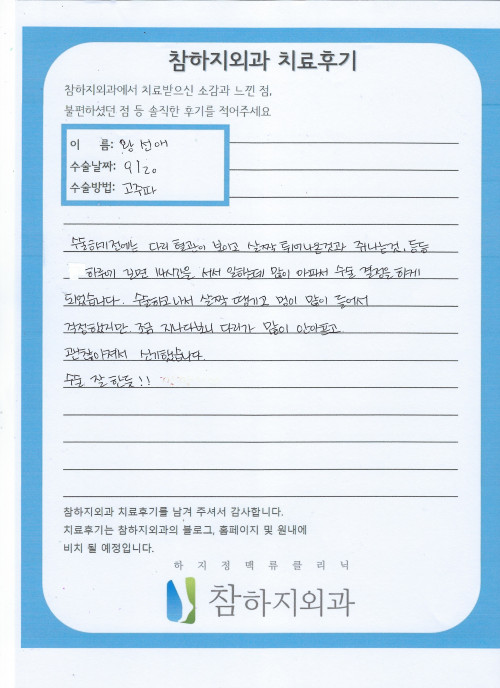 참하지외과 치료후기
참하지외과에서 치료받으신 소감과 느낀 점,
불편하셨던 점 등 솔직한 후기를 적어주세요
이 름: 왕선애
수술날짜: 9/20
수술방법: 고주파
수술하기전에는 다리 혈관이 보이고 살짝 튀어나온것과 쥐나는것, 등등
하루에 길면 14시간을 서서 일하는데 많이 아파서 수술 결정을 하게
되었습니다. 수술하고나서 살짝 땡기고 멍이 많이 들어서
걱정했지만. 조금 지나다보니 다리가 많이 안아프고
괜찮아져서 신기했습니다.
수술 잘 한듯!!
참하지외과 치료후기를 남겨 주셔서 감사합니다.
치료후기는 참하지외과의 블로그, 홈페이지 및 원내에
비치 될 예정입니다.
하지정맥류클리닉
참하지외과